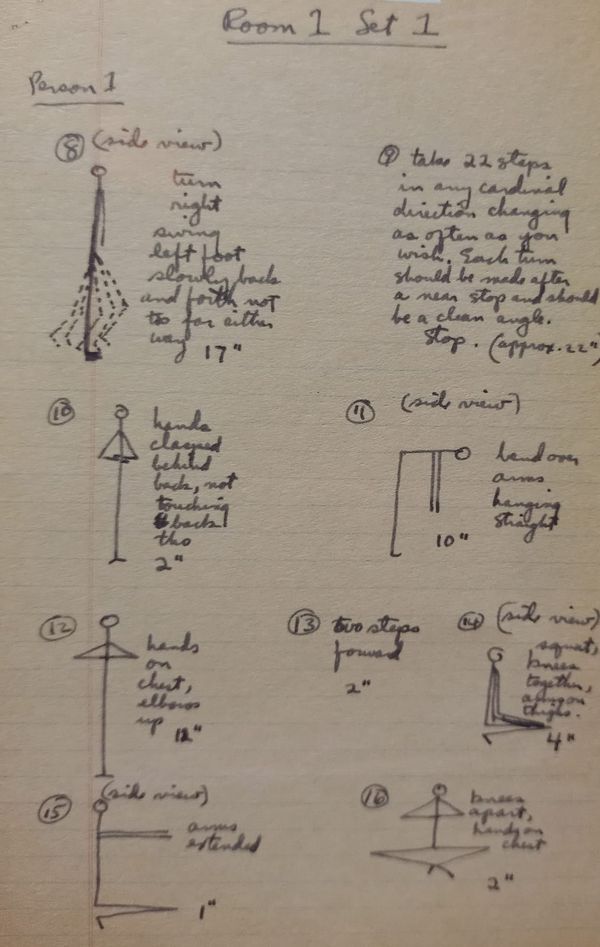 Room 1 Set 1
Person 1
8 (side view)
turn
right
swing
left foot
slowly back
and forth not
too far either
way 17"
9 take 22 steps
in any cardinal
direction changing
as often as you
wish. Each turn
should be made after
a near stop and should
be a clean angle.
Stop. (approx. 22"
10
hands
clasped
behind
back, not
touching
back
tho
2"
11 (side view)
bend over
arms
hanging
straight
10"
12
hands
on
chest,
elbows
up 12"
13 two steps
forward
2"
14 (side view)
squat,
knees
together,
arms on
thighs.
4"
15 (side view)
arms
extended
1"
16
knees
apart,
hands on
chest
2"